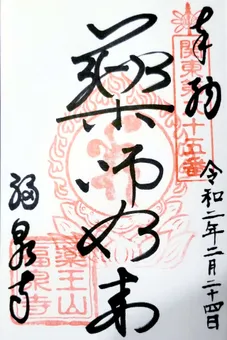 奉拝
関東第十五番
令和二年二月二十四日
薬師如来
福泉寺
薬王山
福泉寺